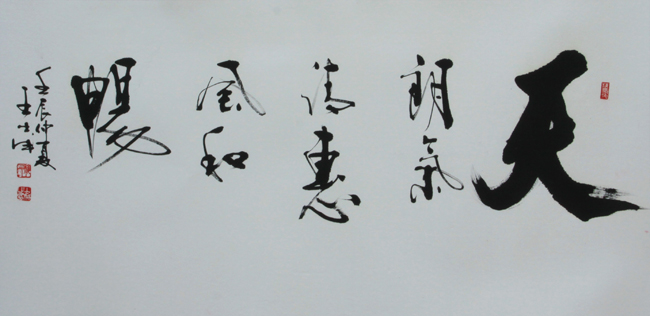 天
朗氣
清惠
風和
暢
壬辰仲夏
王